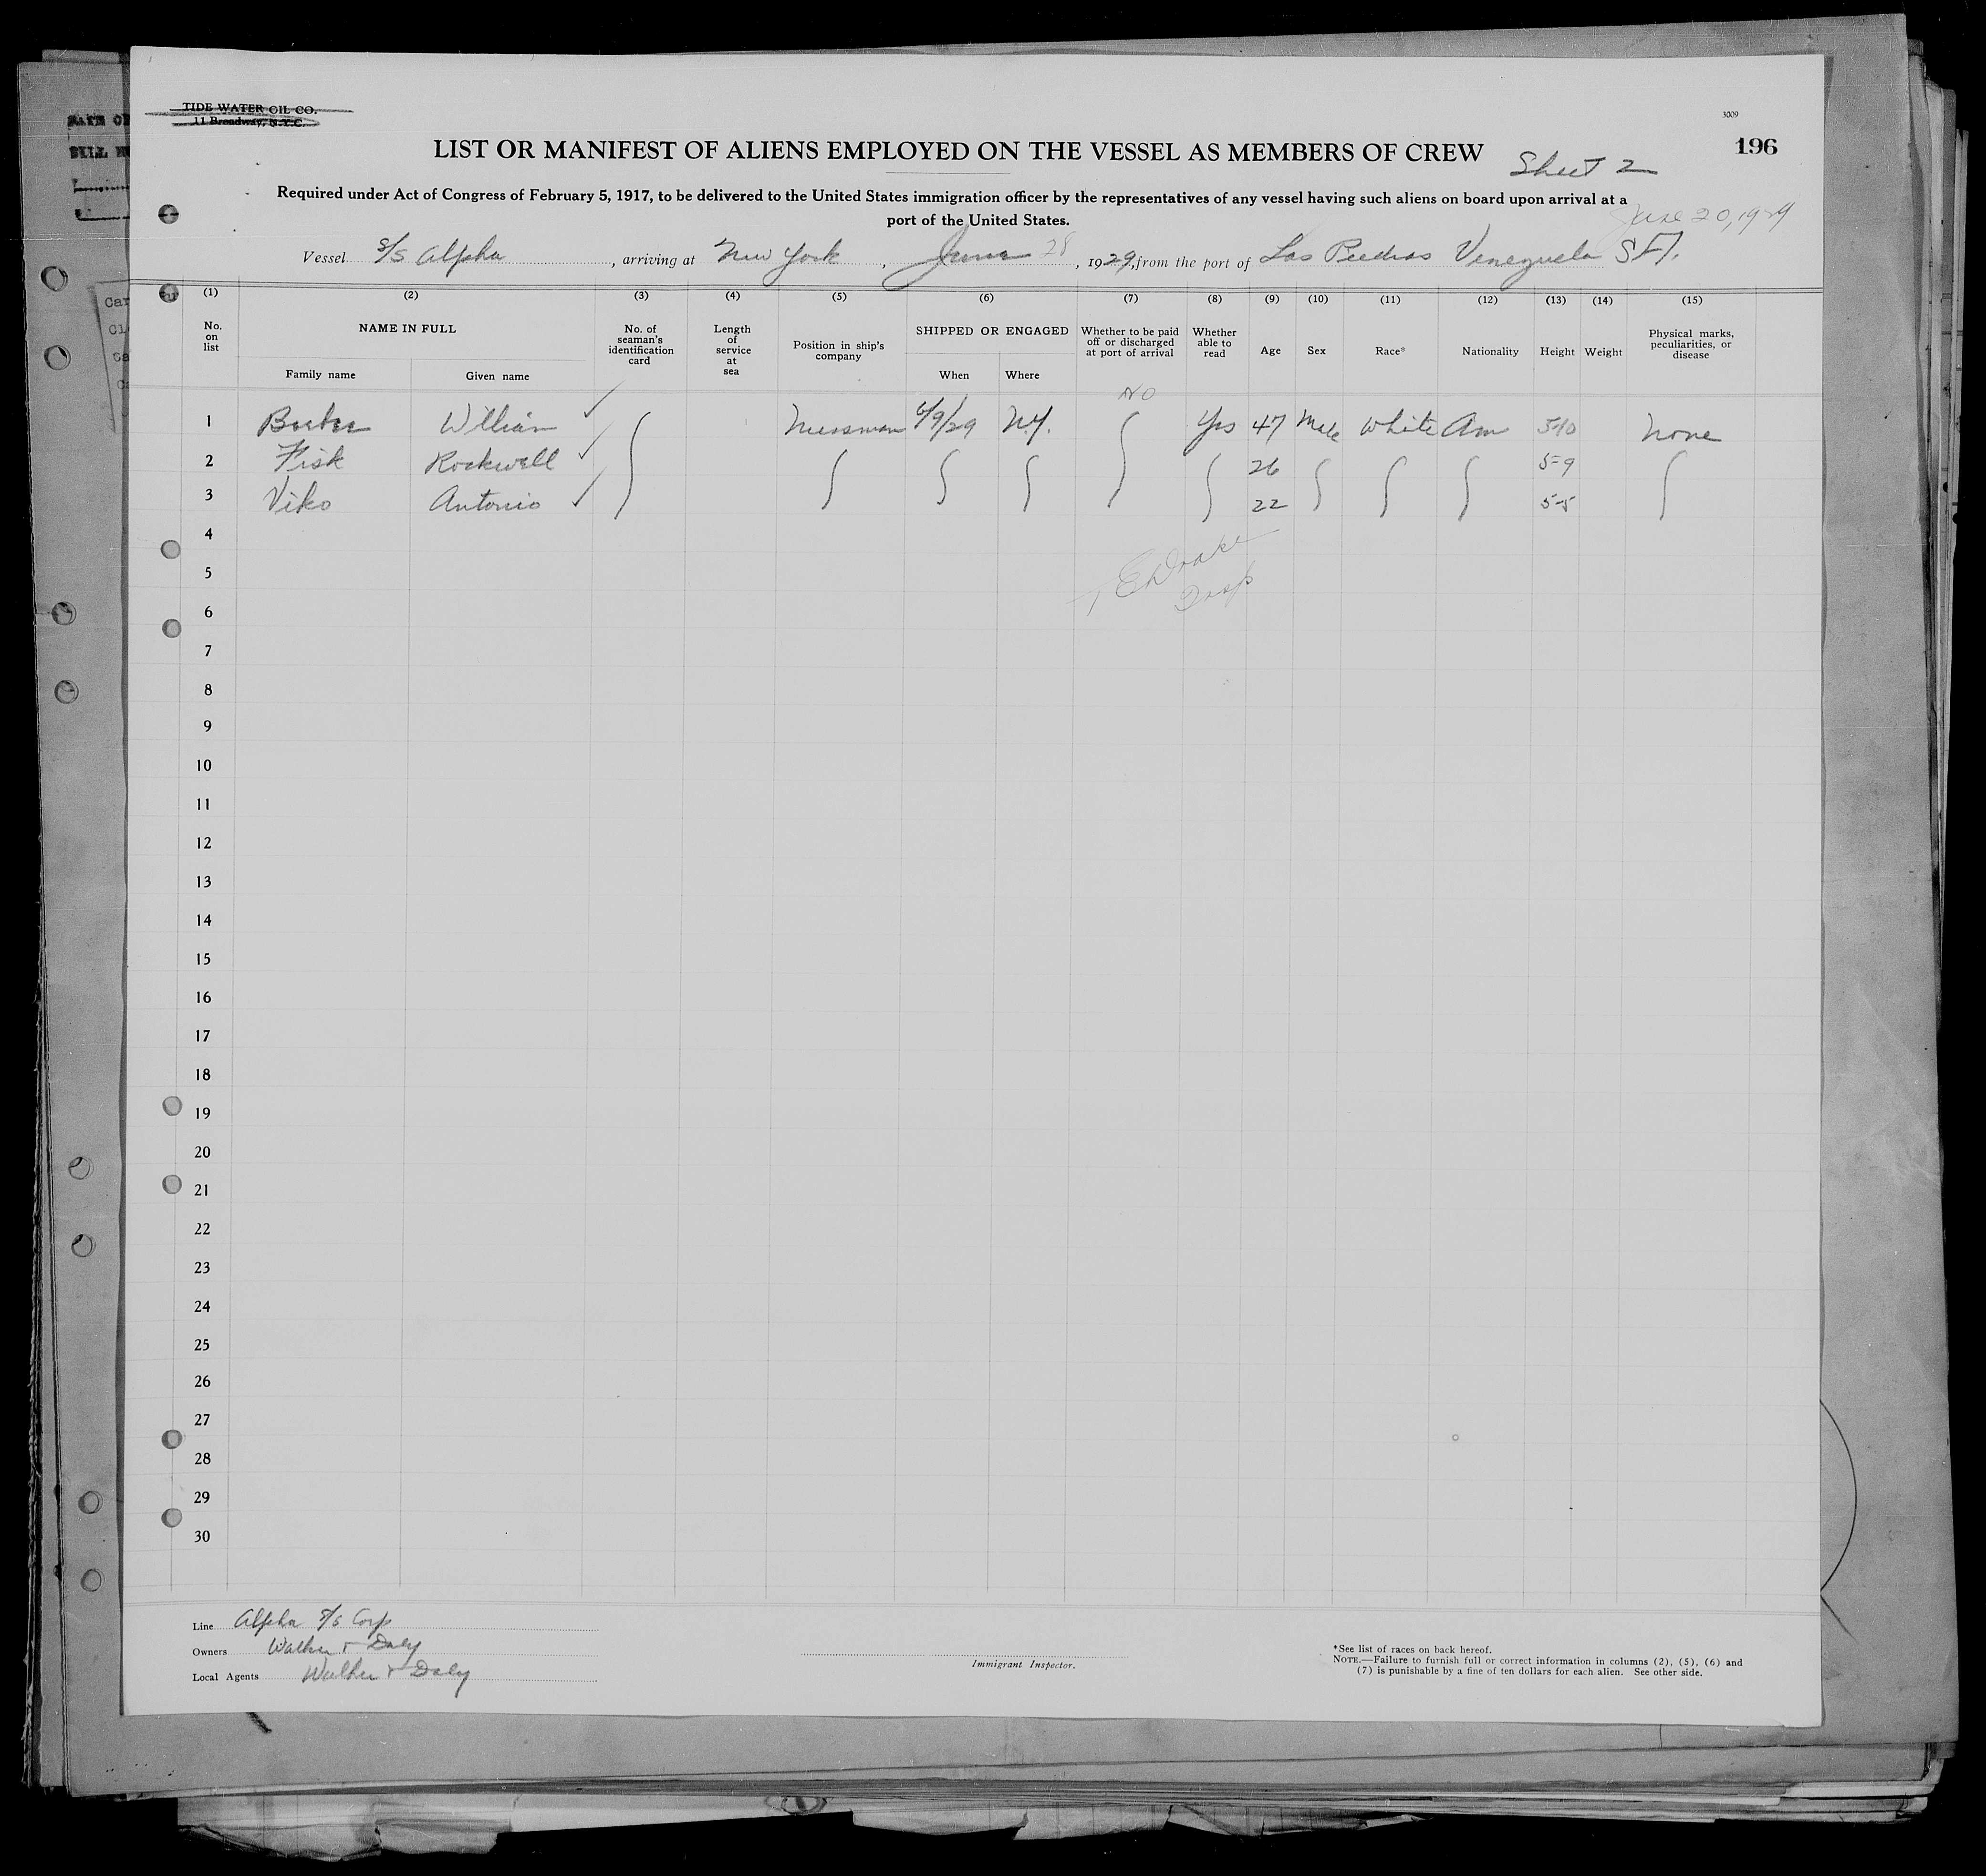 TIDE WATER OIL CO.
11 Broadway, N.Y.C.
3009
196
LIST OR MANIFEST OF ALIENS EMPLOYED ON THE VESSEL AS MEMBERS OF CREW
Sheet 2
Required under Act of Congress of February 5, 1917, to be delivered to the United States immigration officer by the representatives of any vessel having such aliens on board upon arrival at a
port of the United States.
June 20, 1929
Vessel S/S Alpha, arriving at New York, June 28, 1929, from the port of Las Piedras Venezuela
(1) (2) (3) (4) (5) (6) (7) (8) (9) (10) (11) (12) (13) (14) (15)
No. on list
NAME IN FULL
Family name Given name
No. of seaman's identification card
Length of service at sea
Position in ship's company
SHIPPED OR ENGAGED
When Where
Whether to be paid off or discharged at port of arrival
Whether able to read
Age
Sex
Race*
Nationality
Height
Weight
Physical marks, peculiarities, or disease
NO
1 William Messman 6/9/29 N.Y. Yes 47 Male White Am 5-10 None
2 Fisk Rockwell 26 5-9
3 Viko Antonio 22 5-5
4
5
6
7
8
9
10
11
12
13
14
15
16
17
18
19
20
21
22
23
24
25
26
27
28
29
30
E Drake
Insp
Line Alpha S/S Corp
Owners Walker & Daly
Local Agents Walker & Daly
Immigrant Inspector.
*See list of races on back hereof.
NOTE.—Failure to furnish full or correct information in columns (2), (5), (6) and
(7) is punishable by a fine of ten dollars for each alien. See other side.